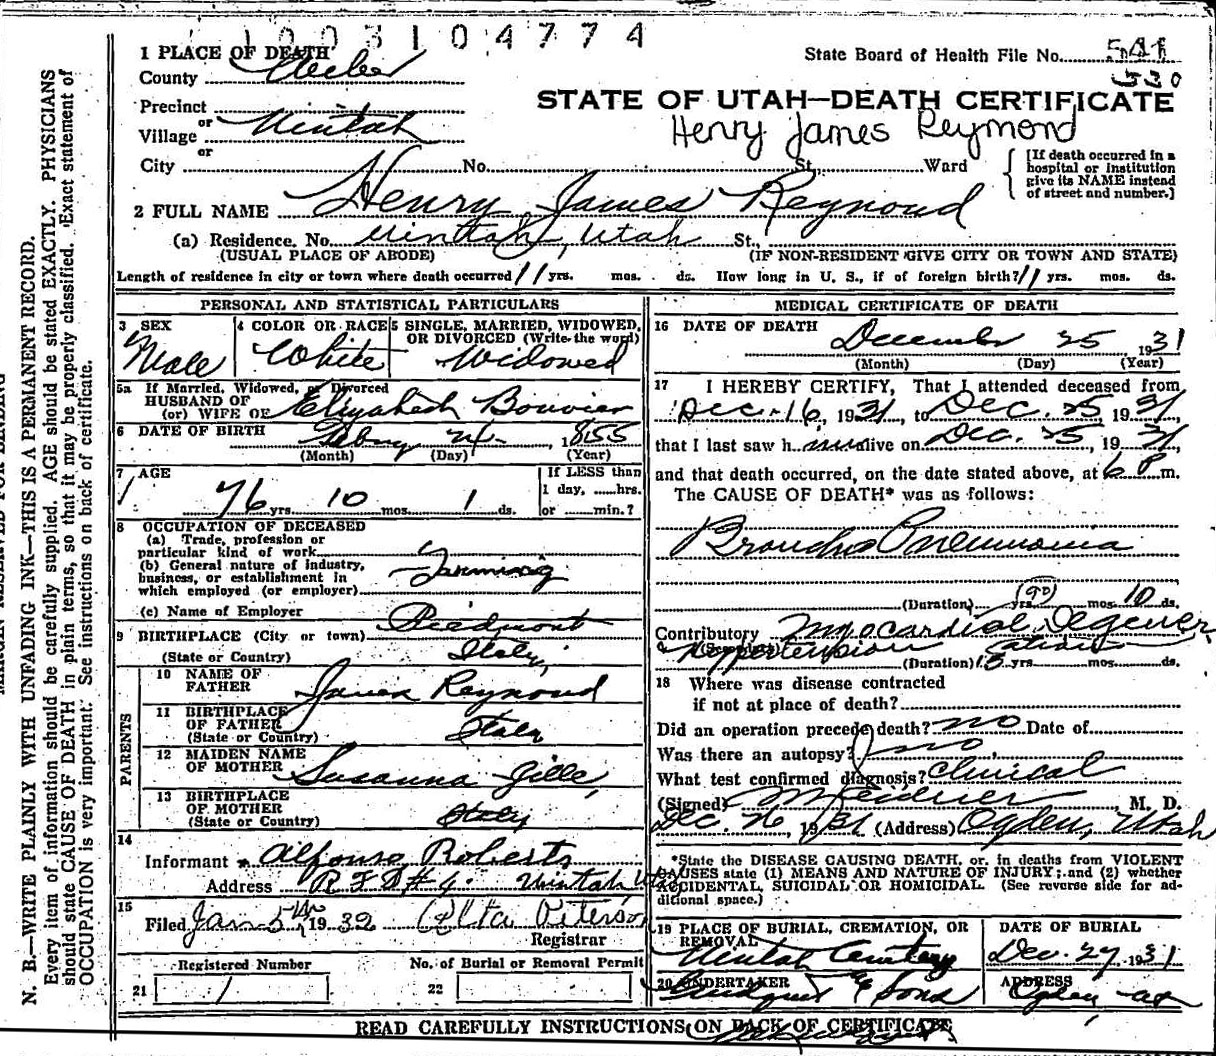 1003104774
1 PLACE OF DEATH
State Board of Health File No. 541
County Weber
530
STATE OF UTAH—DEATH CERTIFICATE
Henry James Reymond
Precinct
or
Village Uintah
or
City No. St. Ward
[If death occurred in a hospital or institution give its NAME instead of street and number.]
2 FULL NAME Henry James Reymond
(a) Residence. No. Uintah, Utah St.,
(USUAL PLACE OF ABODE) (IF NON-RESIDENT GIVE CITY OR TOWN AND STATE)
Length of residence in city or town where death occurred 11 yrs. mos. ds. How long in U. S., if of foreign birth? 11 yrs. mos. ds.
PERSONAL AND STATISTICAL PARTICULARS
3 SEX
Male
4 COLOR OR RACE
White
5 SINGLE, MARRIED, WIDOWED,
OR DIVORCED (Write the word)
Widowed
5a If Married, Widowed, or Divorced
HUSBAND OF
(or) WIFE OF Elizabeth Bouvier
6 DATE OF BIRTH Feby 24 1855
(Month) (Day) (Year)
7 AGE
76 yrs. 10 mos. 1 ds.
If LESS than
1 day, ......hrs.
or ......min.?
8 OCCUPATION OF DECEASED
(a) Trade, profession or
particular kind of work
(b) General nature of industry,
business, or establishment in
which employed (or employer) Farming
(c) Name of Employer
9 BIRTHPLACE (City or town) Piedmont
(State or Country) Italy
PARENTS
10 NAME OF
FATHER James Reymond
11 BIRTHPLACE
OF FATHER
(State or Country) Italy
12 MAIDEN NAME
OF MOTHER Susanna Gille,
13 BIRTHPLACE
OF MOTHER
(State or Country) Italy
14
Informant Alfonso Roberts
Address R.F.D #4 Uintah
15
Filed Jan 5th 1932
Registrar
Registered Number
21 1
No. of Burial or Removal Permit
22
MEDICAL CERTIFICATE OF DEATH
16 DATE OF DEATH
December 25 1931
(Month) (Day) (Year)
17 I HEREBY CERTIFY, That I attended deceased from
Dec. 16, 1931, to Dec. 25 1931,
that I last saw him alive on Dec. 25, 1931,
and that death occurred, on the date stated above, at 6 P m.
The CAUSE OF DEATH* was as follows:
Broncho Pneumonia
(Duration) yrs. mos. 10 ds.
(90)
Contributory Myocardial Degener
Hypertension ation
(Duration) yrs. mos. ds.
18 Where was disease contracted
if not at place of death?
Did an operation precede death? no Date of
Was there an autopsy? no
What test confirmed diagnosis? Clinical
(Signed) M. D.
Dec. 26, 1931 (Address) Ogden, Utah
*State the DISEASE CAUSING DEATH, or, in deaths from VIOLENT
CAUSES state (1) MEANS AND NATURE OF INJURY; and (2) whether
ACCIDENTAL, SUICIDAL OR HOMICIDAL. (See reverse side for ad-
ditional space.)
19 PLACE OF BURIAL, CREMATION, OR
REMOVAL
Uintah Cemetery
DATE OF BURIAL
Dec. 27 1931
20 UNDERTAKER
& Sons
ADDRESS
Ogden,
READ CAREFULLY INSTRUCTIONS ON BACK OF CERTIFICATE
N. B.—WRITE PLAINLY WITH UNFADING INK—THIS IS A PERMANENT RECORD.
Every item of information should be carefully supplied. AGE should be stated EXACTLY. PHYSICIANS
should state CAUSE OF DEATH in plain terms, so that it may be properly classified. Exact statement of
OCCUPATION is very important. See instructions on back of certificate.